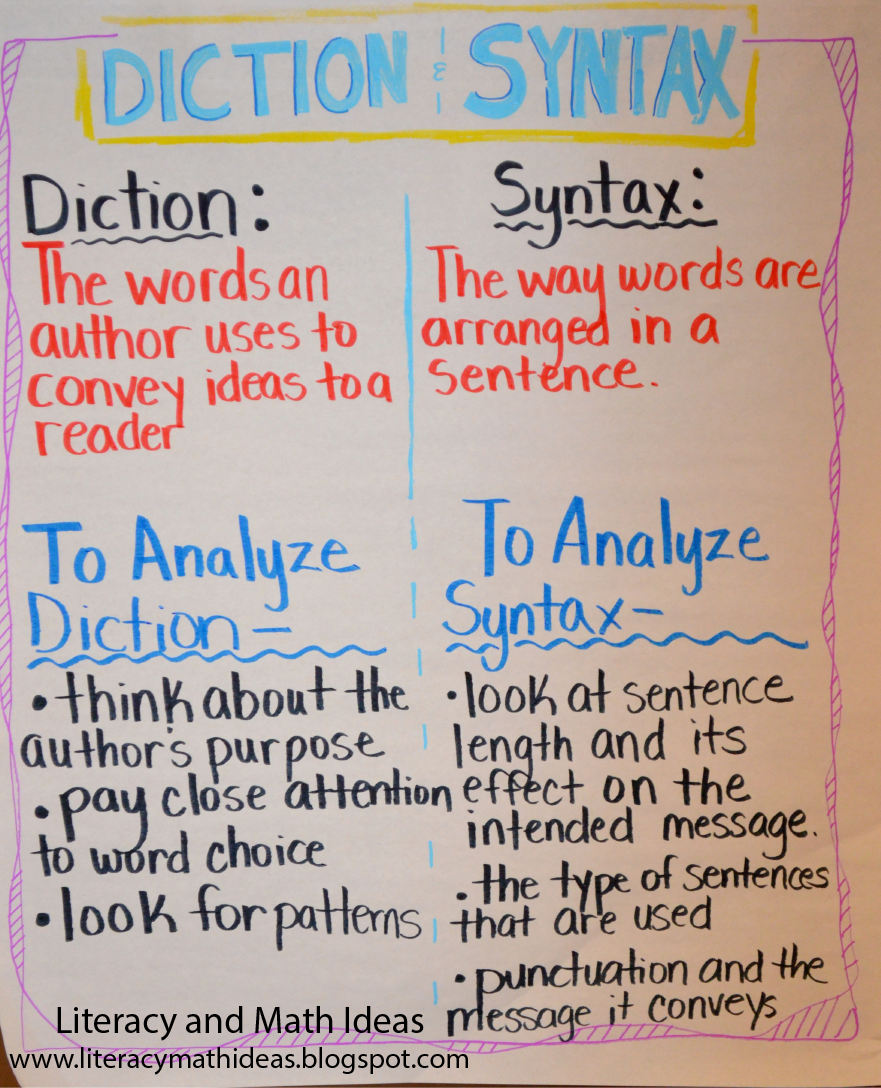 DICTION & SYNTAX
Diction:
The words an
author uses to
convey ideas to a
reader
Syntax:
The way words are
arranged in a
sentence.
To Analyze
Diction-
• think about the
author's purpose
• pay close attention
to word choice
• look for patterns
To Analyze
Syntax-
• look at sentence
length and its
effect on the
intended message.
• the type of sentences
that are used
• punctuation and the
message it conveys
Literacy and Math Ideas
www.literacymathideas.blogspot.com